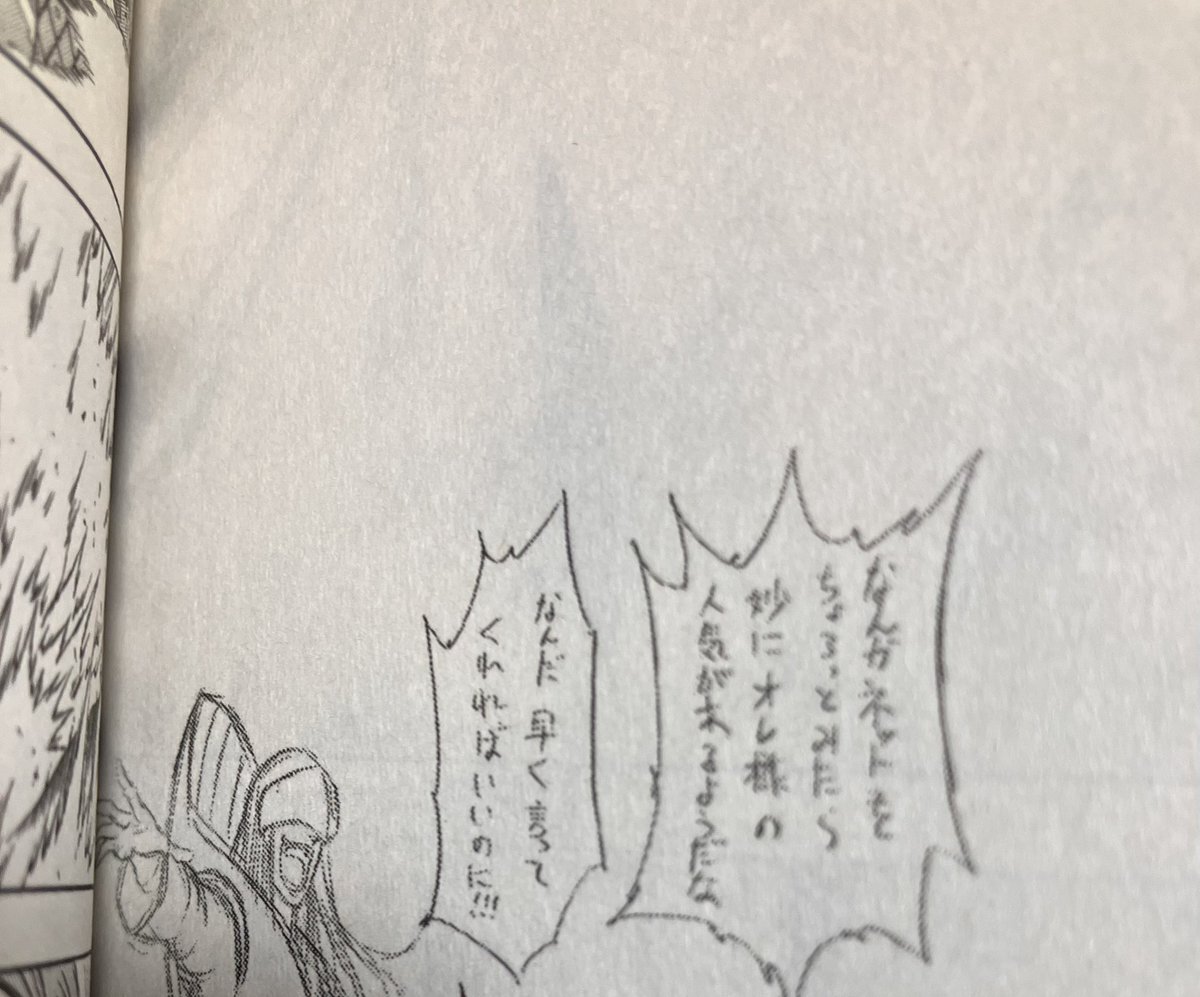 なんかネットを
ちょっと見たら
妙にオレ様の
人気があるようだな
なんだ 早く言って
くれればいいのに!!!